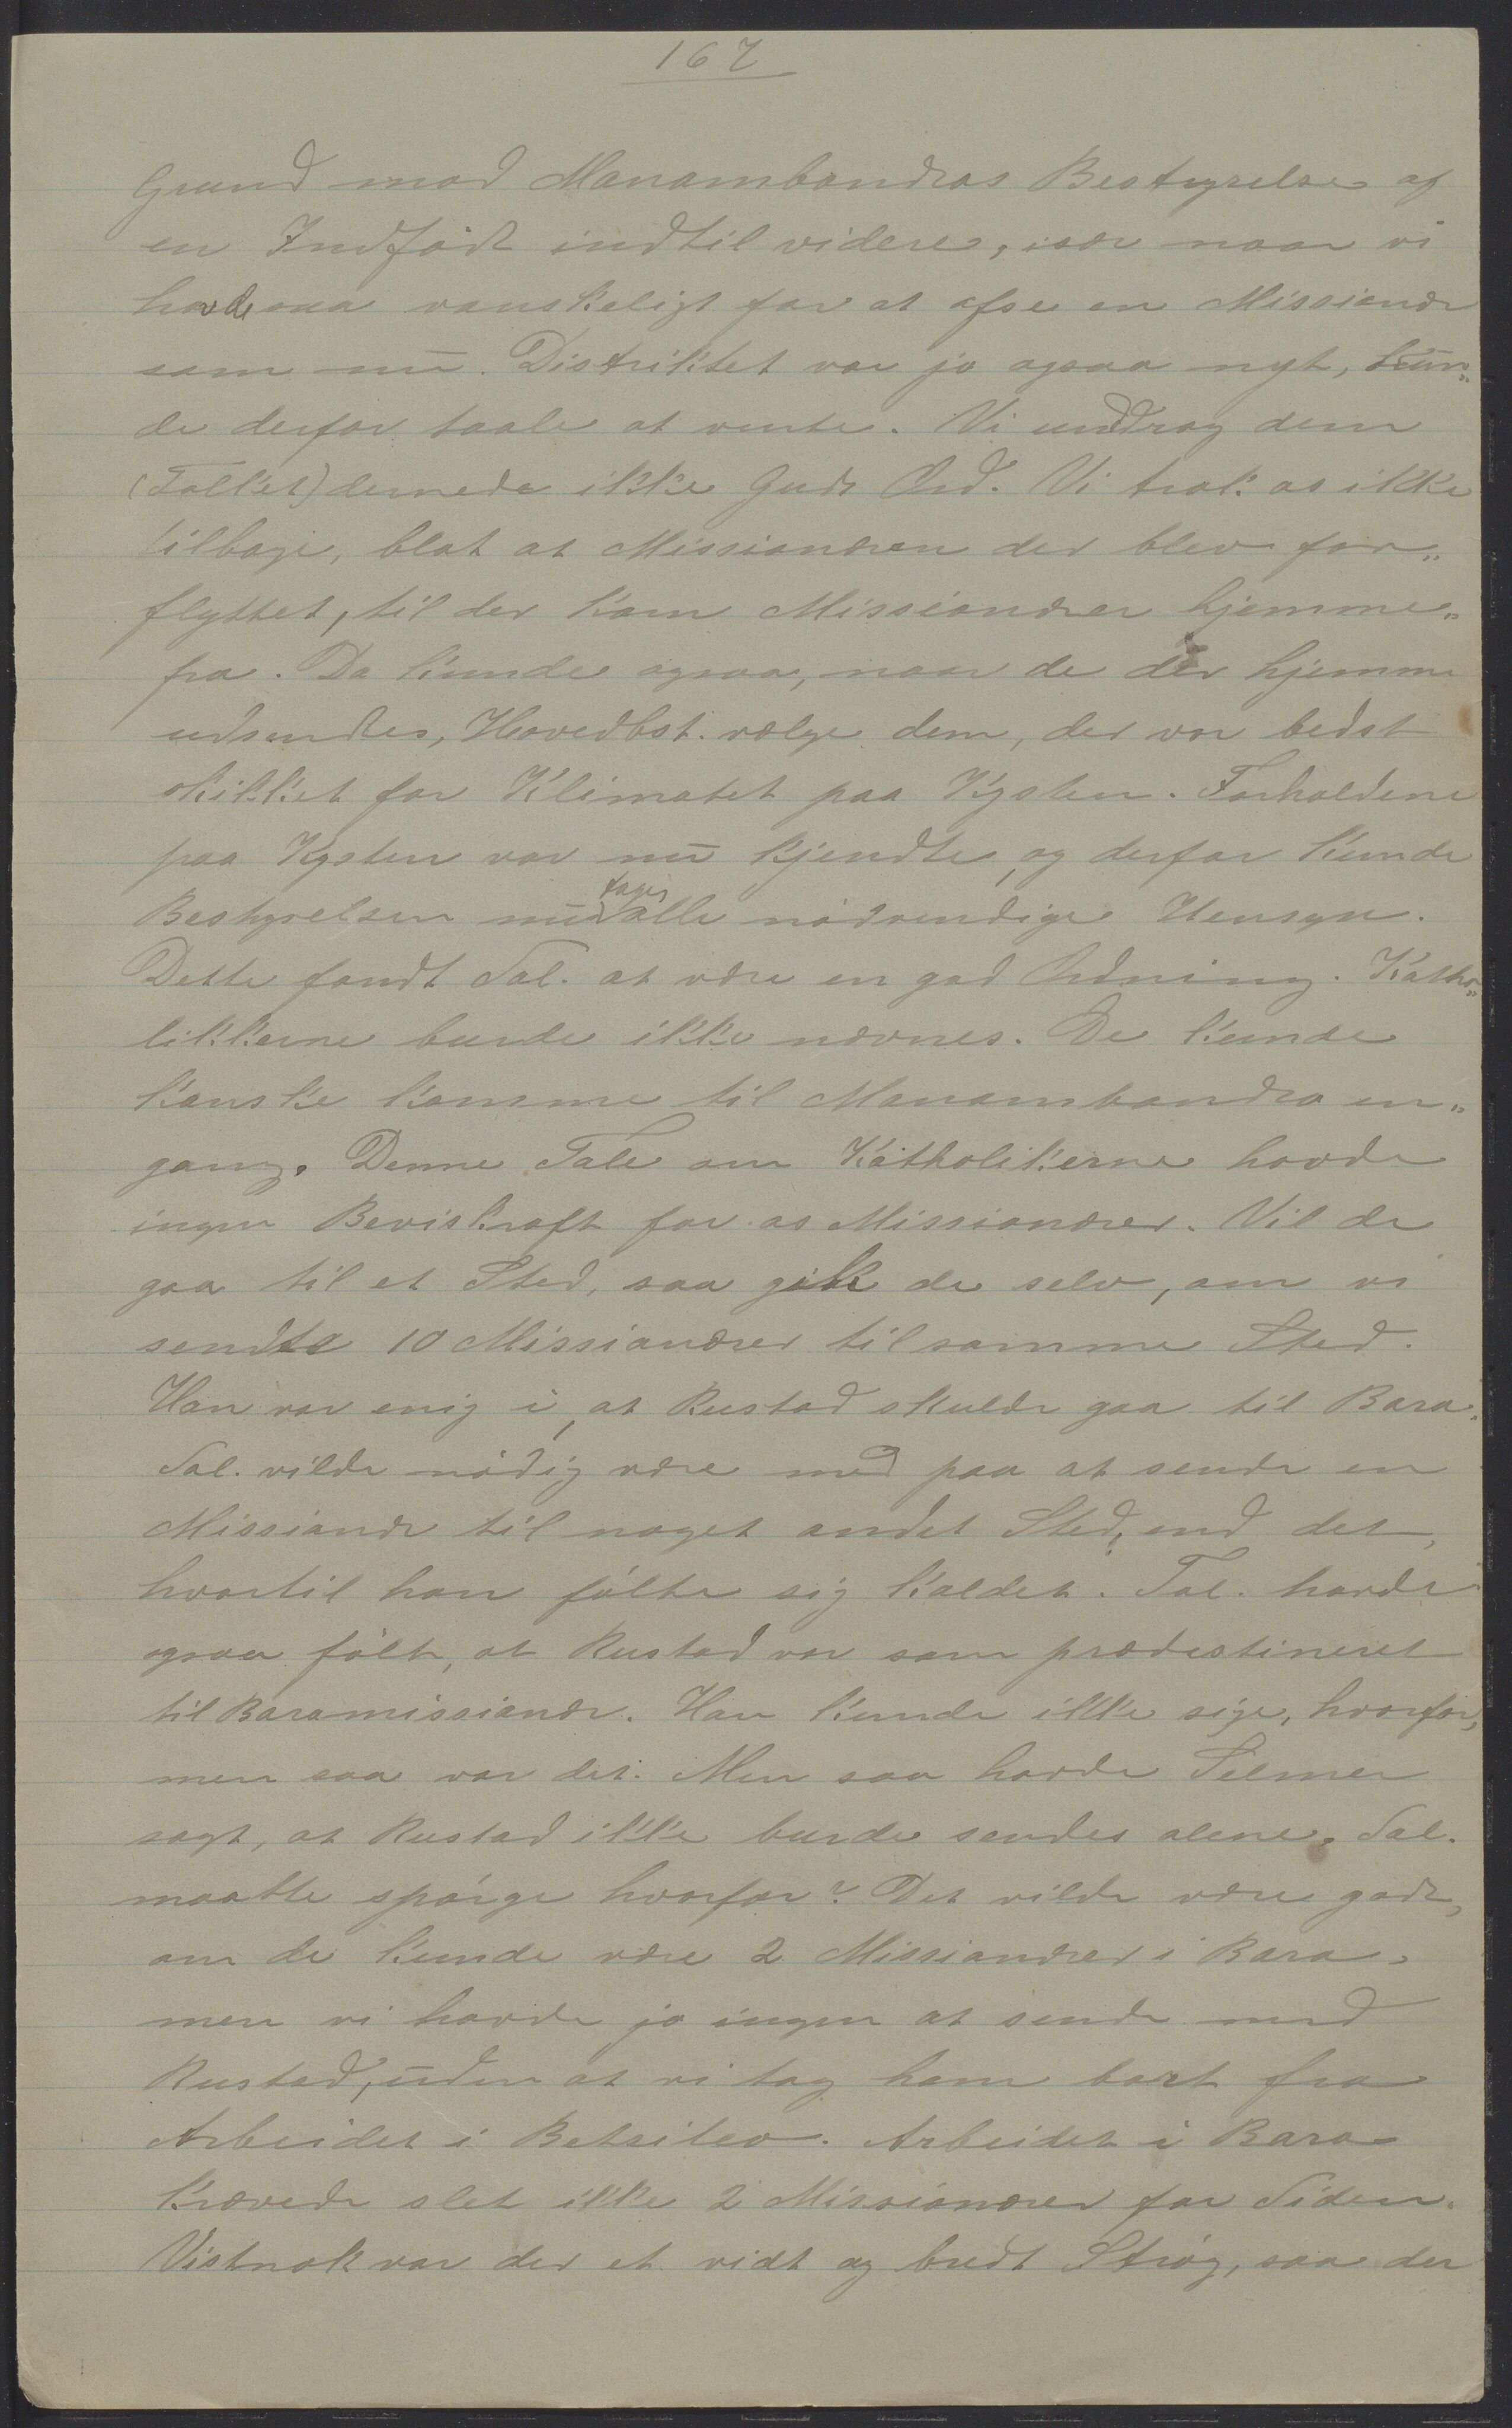 167
Grund mod Manambondros Bestyrelse af
en Indfødt indtil videre, især naar vi
havde saa vanskeligt for at afse en Missionær
som nu. Distriktet var jo ogsaa nyt, kun„
de derfor taale at vente. Vi unddrog dem
(Folket) dernede ikke Guds Ord. Vi trak os ikke
tilbage, blot at Missionæren der blev for„
flyttet, til der kom Missionærer hjemme„
fra. Da kunde ogsaa, naar de der hjemme
udsendtes, Hovedbst. vælge dem, der var bedst
skikket for Klimatet paa Kysten. Forholdene
paa Kysten var nu kjendte, og derfor kunde
Bestyrelsen nu tage alle nødvendige Hensyn.
Dette fandt Tal. at være en god Ordning. Katho„
likkerne burde ikke nævnes. De kunde
kanske komme til Manambondro en„
gang. Denne Tale om Katholikerne havde
ingen Beviskraft for os Missionærer. Vil de
gaa til et Sted, saa gik de selv, om vi
sendte 10 Missionærer til samme Sted.
Han var enig i, at Rustad skulde gaa til Bara.
Tal. vilde nødig være med paa at sende en
Missionær til noget andet Sted, end det,
hvortil han følte sig kaldet. Tal. havde
ogsaa følt, at Rustad var som prædestineret
til Baramissionær. Han kunde ikke sige, hvorfor,
men saa var det. Men saa havde Selmer
sagt, at Rustad ikke burde sendes alene. Tal.
maatte spørge hvorfor? Det vilde være godt,
om de kunde være 2 Missionærer i Bara,
men vi havde jo ingen at sende med
Rustad, uden at vi tog ham bort fra
Arbeidet i Betsileo. Arbeidet i Bara
krævede slet ikke 2 Missionærer for Tiden.
Vistnok var der et vidt og bredt Strøg, saa der